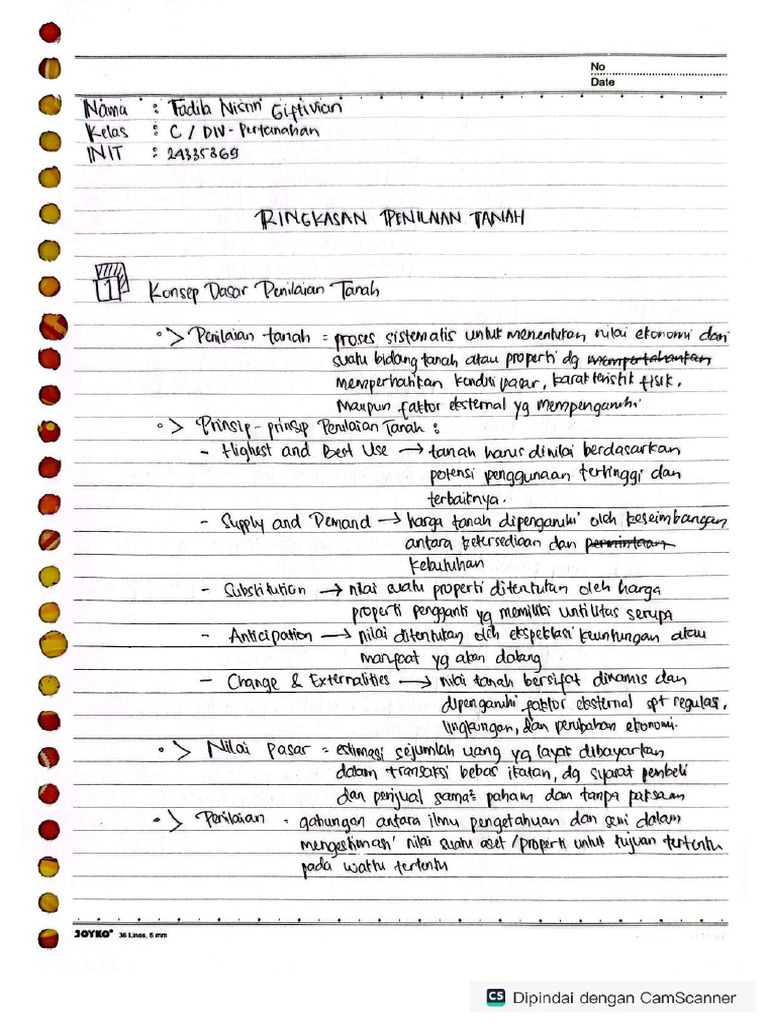 No
Date
Nama : Fadila Nisrin Giftivian
Kelas : C / DIV - Pertanahan
INIT : 24335869
RINGKASAN PENILAIAN TANAH
1 Konsep Dasar Penilaian Tanah
°> Penilaian tanah = proses sistematis untuk menentukan nilai ekonomi dari
suatu bidang tanah atau properti dg mempertahankan
memperhatikan kondisi pasar, karakteristik fisik,
maupun faktor eksternal yg mempengaruhi
°> Prinsip - prinsip Penilaian Tanah :
- Highest and Best Use → tanah harus dinilai berdasarkan
potensi penggunaan tertinggi dan
terbaiknya.
- Supply and Demand → harga tanah dipengaruhi oleh keseimbangan
antara ketersediaan dan permintaan
kebutuhan
- Substitution → nilai suatu properti ditentukan oleh harga
properti pengganti yg memiliki untilitas serupa
- Anticipation → nilai ditentukan oleh ekspektasi keuntungan atau
manfaat yg akan datang
- Change & Externalities → nilai tanah bersifat dinamis dan
dipengaruhi faktor eksternal spt regulasi,
lingkungan, dan perubahan ekonomi.
°> Nilai pasar = estimasi sejumlah uang yg layak dibayarkan
dalam transaksi bebas ikatan, dg syarat pembeli
dan penjual sama² paham dan tanpa paksaan
°> Penilaian = gabungan antara ilmu pengetahuan dan seni dalam
mengestimasi nilai suatu aset/properti untuk tujuan tertentu
pada waktu tertentu
JOYKO 36 Lines, 6 mm
CS Dipindai dengan CamScanner